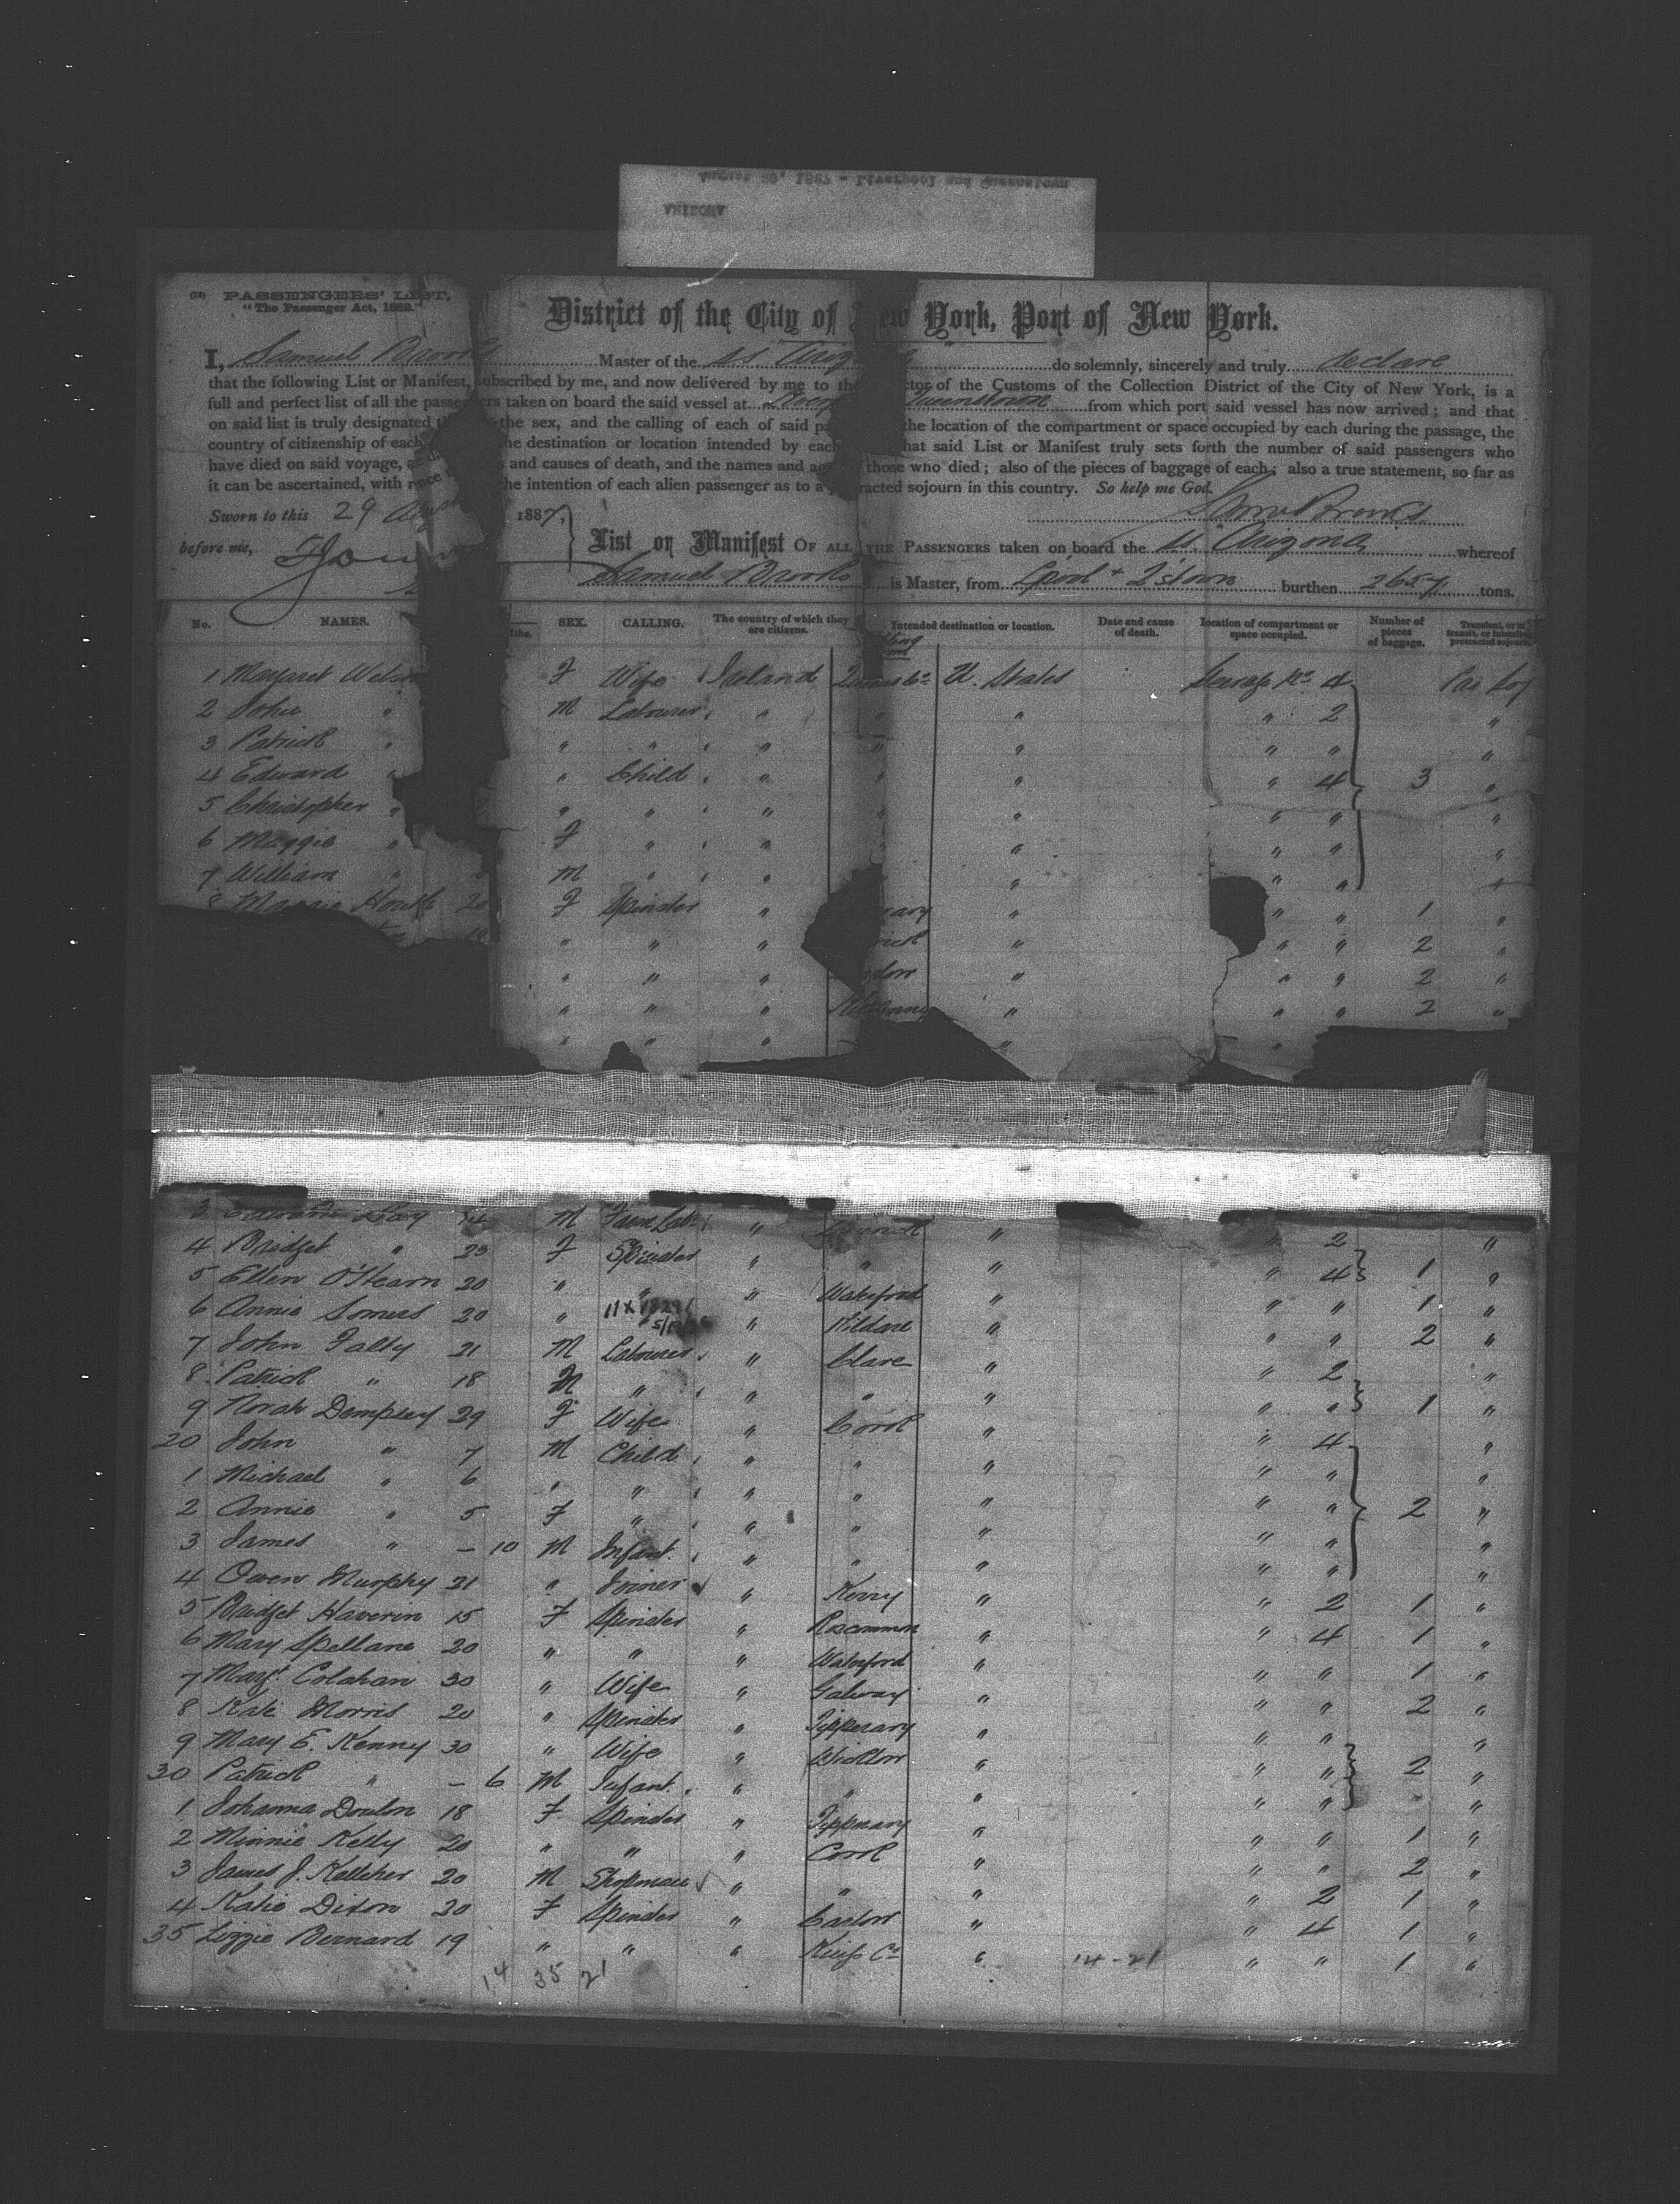 PASSENGERS' LIST,
"The Passenger Act, 1882."
District of the City of New York, Port of New York.
I, Samuel Brooks Master of the SS. Arizona do solemnly, sincerely and truly declare
that the following List or Manifest, subscribed by me, and now delivered by me to the ctor of the Customs of the Collection District of the City of New York, is a
full and perfect list of all the passengers taken on board the said vessel at Queenstown from which port said vessel has now arrived; and that
on said list is truly designated the sex, and the calling of each of said pa the location of the compartment or space occupied by each during the passage, the
country of citizenship of each he destination or location intended by each hat said List or Manifest truly sets forth the number of said passengers who
have died on said voyage, and causes of death, and the names and ag those who died; also of the pieces of baggage of each; also a true statement, so far as
it can be ascertained, with he intention of each alien passenger as to a racted sojourn in this country. So help me God.
Sworn to this 29 1887,
before me,
List or Manifest OF ALL THE PASSENGERS taken on board the SS. Arizona whereof
Samuel Brooks is Master, from L'pool + Q'stown burthen 2657 tons.
No. NAMES. ths. SEX. CALLING. The country of which they are citizens. Intended destination or location. Date and cause of death. Location of compartment or space occupied. Number of pieces of baggage. Transient, or in transit, or intending protracted sojourn.
1 Margaret F Wife Ireland U. States Steerage No 4
2 John " M Labourer " " " 2 "
3 Patrick " " " " " " " "
4 Edward " " Child " " " 4 3 "
5 Christopher " " " " " " " "
6 Maggie " F " " " " " "
7 William " M " " " " " "
8 20 F Spinster " " " " 1 "
" " " " " " 2 "
" " " " " " 2 "
" " " Kilkenny " " " 2 "
" " " " "
3 Day M Farm Lab. " " 2 "
4 Bridget " 23 F Spinster " " " " 4 1 "
5 Ellen O'Hearn 20 " " " Waterford " " " 1 "
6 Annie Somers 20 " " Kildare " " " 2 "
7 John Falty 21 M Labourer " Clare " " 2 "
8 Patrick " 18 M " " " " " " 1 "
9 Norah Dempsey 29 F Wife " Cork " " 4 "
20 John " 7 M Child " " " " " "
1 Michael " 6 " " " " " " " "
2 Annie " 5 F " " " " " " 2 "
3 James " – 10 M Infant " " " " " "
4 Owen Murphy 21 " Joiner " Kerry " " 2 1 "
5 Bridget Haverin 15 F Spinster " Roscommon " " 4 1 "
6 Mary Spellane 20 " " " Waterford " " " 1 "
7 Margt. Colahan 30 " Wife " Galway " " " 2 "
8 Kate Morris 20 " Spinster " Tipperary " " " "
9 Mary E. Kenny 30 " Wife " Wicklow " " " 2 "
30 Patrick " – 6 M Infant " " " " " "
1 Johanna 18 F Spinster " Tipperary " " " 1 "
2 Minnie Kelly 20 " " " Cork " " " 2 "
3 James J. Kelleher 20 M Shopman " " " " 2 1 "
4 Katie Dixon 20 F Spinster " Carlow " " 4 1 "
35 Lizzie Bernard 19 " " " " " " 1 "
14 35 21
14-21